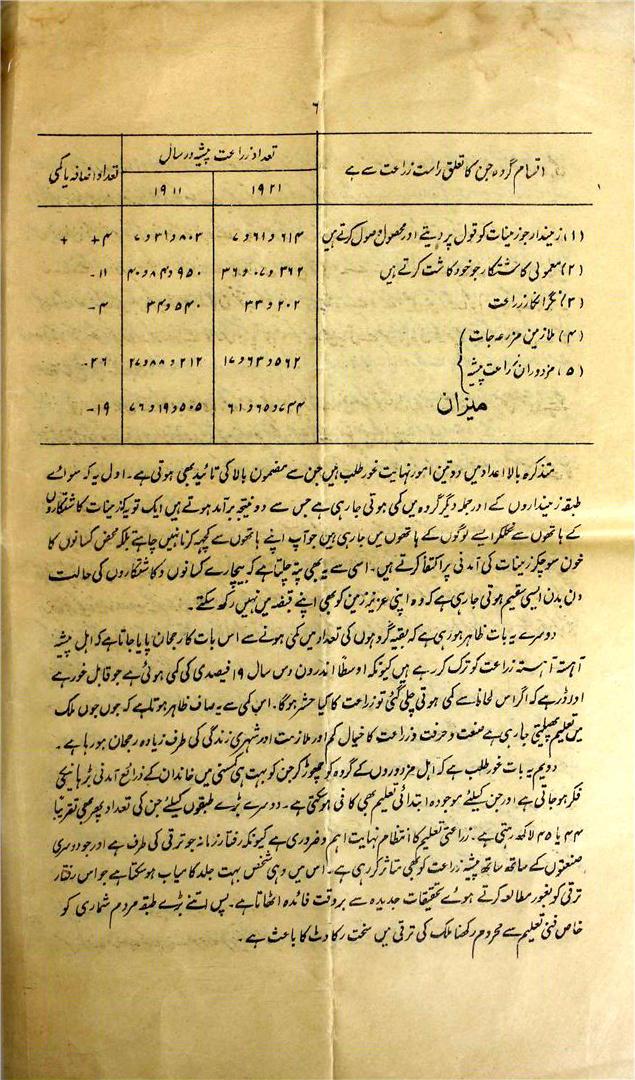 ۶
اقسام گروہ جن کا تعلق راست زراعت سے ہے
تعداد زراعت پیشہ در سال
تعداد اضافہ یا کمی
۱۹۲۱
۱۹۱۱
(۱) زمیندار جو زمینات کو قول پر دیتے اور محصول وصول کرتے ہیں ۶۱۴و۶۱و۷ ۸۰۳و۳۱و۷ +۴ +
(۲) معمولی کاشتکار جو خود کاشت کرتے ہیں ۳۶۲و۰۷و۳۶ ۹۵۰و۸۴و۴۰ ۱۱-
(۳) نگرانکار زراعت ۲۰۲و۳۳ ۵۴۰و۳۴ ۴-
(۴) ملازمین مزرعہ جات
(۵) مزدوران زراعت پیشہ ۵۶۲و۶۳و۱۷ ۲۱۲و۸۸و۲۷ ۲۶-
میزان ۷۴۴و۶۵و۶۱ ۵۰۵و۱۹و۷۶ ۱۹-
متذکرہ بالا اعداد میں دو تین امور نہایت غور طلب ہیں جن سے مضمون بالا کی تائید بھی ہوتی ہے۔ اول یہ کہ سوائے
طبقہ زمینداروں کے اور جملہ دیگر گروہ میں کمی ہوتی جا رہی ہے جس سے دو نتیجہ برآمد ہوتے ہیں ایک تو یہ کہ زمینات کاشتکاروں
کے ہاتھوں سے نکلکر ایسے لوگوں کے ہاتھوں میں جا رہی ہیں جو آپ اپنے ہاتھوں سے کچھ کرنا نہیں چاہتے بلکہ محض کسانوں کا
خون سوچکر زمینات کی آمدنی پر اکتفا کرتے ہیں۔ اسی سے یہ بھی پتہ چلتا ہے کہ بیچارے کسانوں و کاشتکاروں کی حالت
دن بدن ایسی سقیم ہوتی جا رہی ہے کہ وہ اپنی عزیز زمین کو بھی اپنے قبضہ میں نہیں رکھ سکتے۔
دوسرے یہ بات ظاہر ہو رہی ہے کہ بقیہ گروہوں کی تعداد میں کمی ہونے سے اس بات کا رجحان پایا جاتا ہے کہ اہل پیشہ
آہستہ آہستہ زراعت کو ترک کر رہے ہیں کیونکہ اوسطاً اندرون دس سال ۱۹ فیصدی کی کمی ہوئی ہے جو قابل غور ہے
اور ڈر ہے کہ اگر اس لحاظ سے کمی ہوتی چلی گئی تو زراعت کا کیا حشر ہوگا۔ اس کمی سے یہ صاف ظاہر ہوتا ہے کہ جوں جوں ملک
میں تعلیم پھیلتی جا رہی ہے صنعت و حرفت و زراعت کا خیال کم اور ملازمت اور شہری زندگی کی طرف زیادہ رجحان ہو رہا ہے۔
دویم یہ بات غور طلب ہے کہ اہل مزدوروں کے گروہ کو چھوڑ کر جن کو بہت ہی کمسنی میں خاندان کے ذرائع آمدنی بڑھانیکی
فکر ہو جاتی ہے اور جن کیلئے موجودہ ابتدائی تعلیم بھی کافی ہو سکتی ہے۔ دوسرے بڑے طبقوں کیلئے جن کی تعداد پھر بھی تقریباً
۴۴ یا ۴۵ لاکھ رہتی ہے۔ زراعتی تعلیم کا انتظام نہایت اہم و ضروری ہے کیونکہ رفتار زمانہ جو ترقی کی طرف ہے اور جو دوسری
صنعتوں کے ساتھ ساتھ پیشہ زراعت کو بھی متاثر کر رہی ہے۔ اس میں وہی شخص بہت جلد کامیاب ہو سکتا ہے جو اس رفتار
ترقی کو بغور مطالعہ کرتے ہوئے تحقیقات جدیدہ سے بروقت فائدہ اٹھاتا ہے۔ پس اتنے بڑے طبقہ مردم شماری کو
خاص فنی تعلیم سے محروم رکھنا ملک کی ترقی میں سخت رکاوٹ کا باعث ہے۔